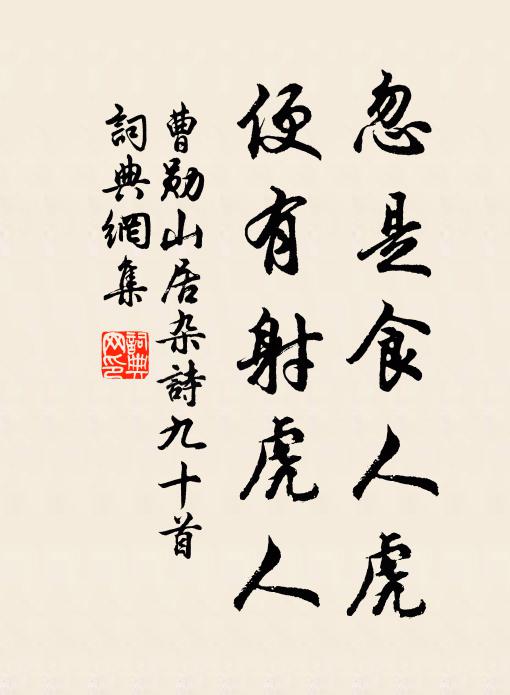 忽是食人虎
便有射虎人
曹勛山居杂詩九十首
詞典網集
詞典
网印